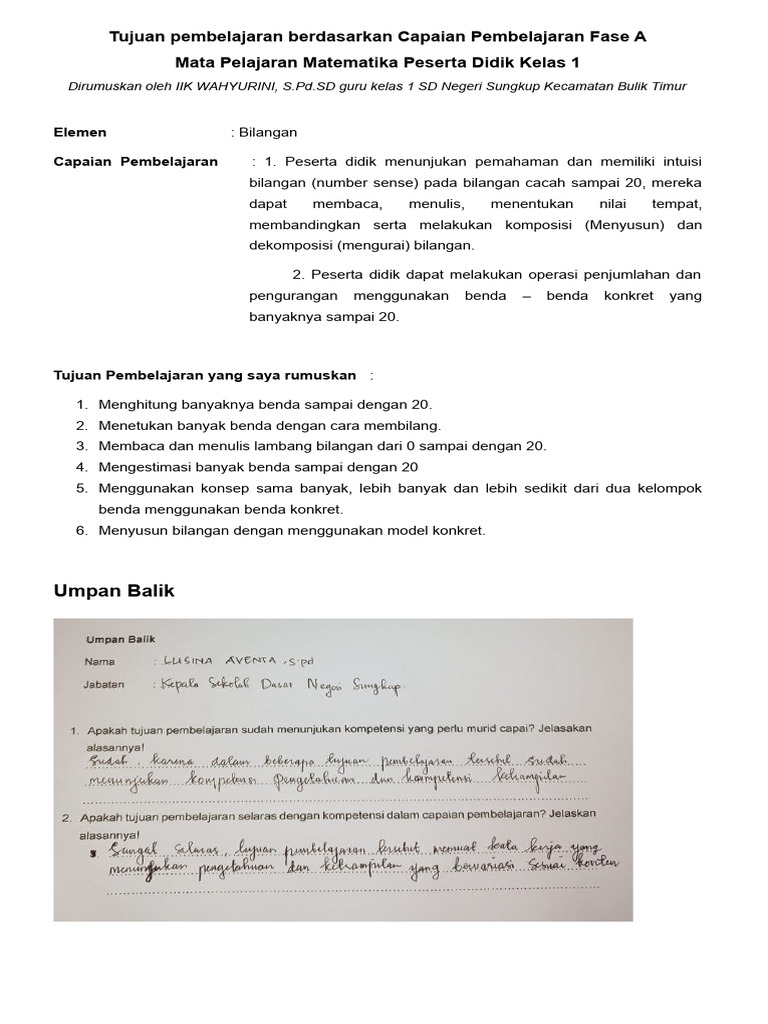 Tujuan pembelajaran berdasarkan Capaian Pembelajaran Fase A
Mata Pelajaran Matematika Peserta Didik Kelas 1
Dirumuskan oleh IIK WAHYURINI, S.Pd.SD guru kelas 1 SD Negeri Sungkup Kecamatan Bulik Timur
Elemen : Bilangan
Capaian Pembelajaran : 1. Peserta didik menunjukan pemahaman dan memiliki intuisi
bilangan (number sense) pada bilangan cacah sampai 20, mereka
dapat membaca, menulis, menentukan nilai tempat,
membandingkan serta melakukan komposisi (Menyusun) dan
dekomposisi (mengurai) bilangan.
2. Peserta didik dapat melakukan operasi penjumlahan dan
pengurangan menggunakan benda – benda konkret yang
banyaknya sampai 20.
Tujuan Pembelajaran yang saya rumuskan :
1. Menghitung banyaknya benda sampai dengan 20.
2. Menetukan banyak benda dengan cara membilang.
3. Membaca dan menulis lambang bilangan dari 0 sampai dengan 20.
4. Mengestimasi banyak benda sampai dengan 20
5. Menggunakan konsep sama banyak, lebih banyak dan lebih sedikit dari dua kelompok
benda menggunakan benda konkret.
6. Menyusun bilangan dengan menggunakan model konkret.
Umpan Balik
Umpan Balik
Nama : LUSINA AVENTA, S.pd
Jabatan : Kepala Sekolah Dasar Negeri Sungkup.
1. Apakah tujuan pembelajaran sudah menunjukan kompetensi yang perlu murid capai? Jelasakan
alasannya!
Sudah, karena dalam beberapa tujuan pembelajaran tersebut sudah
menunjukan kompetensi pengetahuan dan kompetensi ketrampilan
2. Apakah tujuan pembelajaran selaras dengan kompetensi dalam capaian pembelajaran? Jelaskan
alasannya!
Sangat selaras, tujuan pembelajaran tersebut memuat kata kerja yang
menunjukan pengetahuan dan ketrampilan yang bervariasi sesuai konten